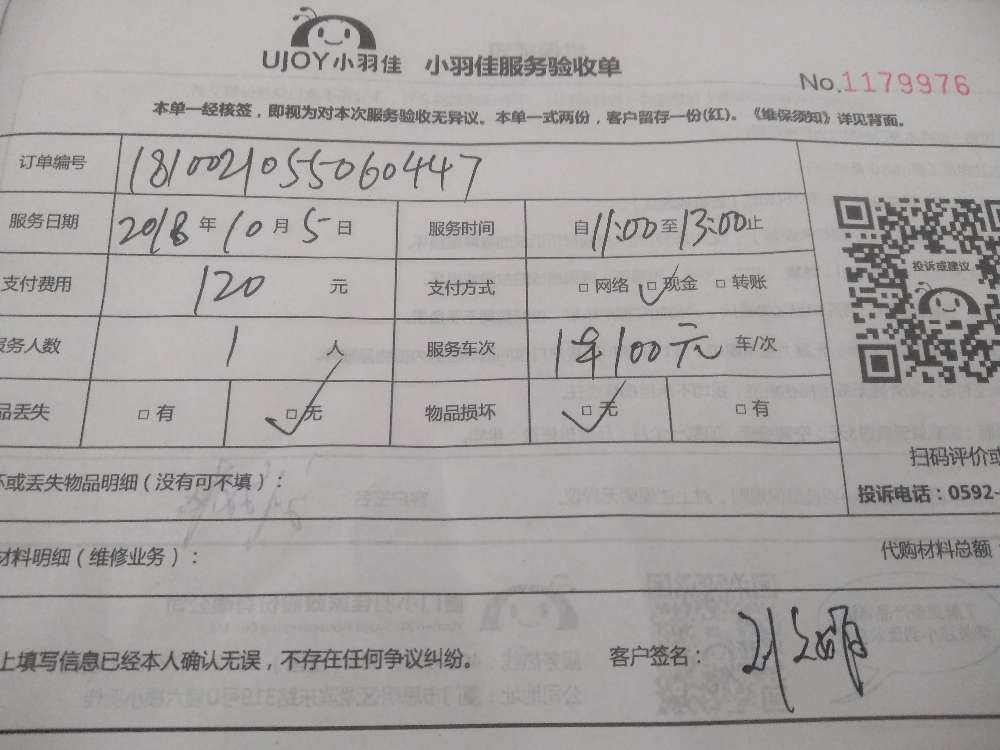 UJOY小羽佳 小羽佳服务验收单
No.1179976
本单一经核签，即视为对本次服务验收无异议。本单一式两份，客户留存一份(红)。《维保须知》详见背面。
订单编号 1810021055060447
服务日期 2018 年 10 月 5 日 服务时间 自 11:00 至 13:00 止
投诉或建议
支付费用 120 元 支付方式 □ 网络 □ 现金 □ 转账
服务人数 1 人 服务车次 1车100元 车/次
品丢失 □ 有 □ 无 物品损坏 □ 无 □ 有
扫码评价或
坏或丢失物品明细（没有可不填）：
投诉电话：0592-
材料明细（维修业务）： 代购材料总额：
上填写信息已经本人确认无误，不存在任何争议纠纷。 客户签名：